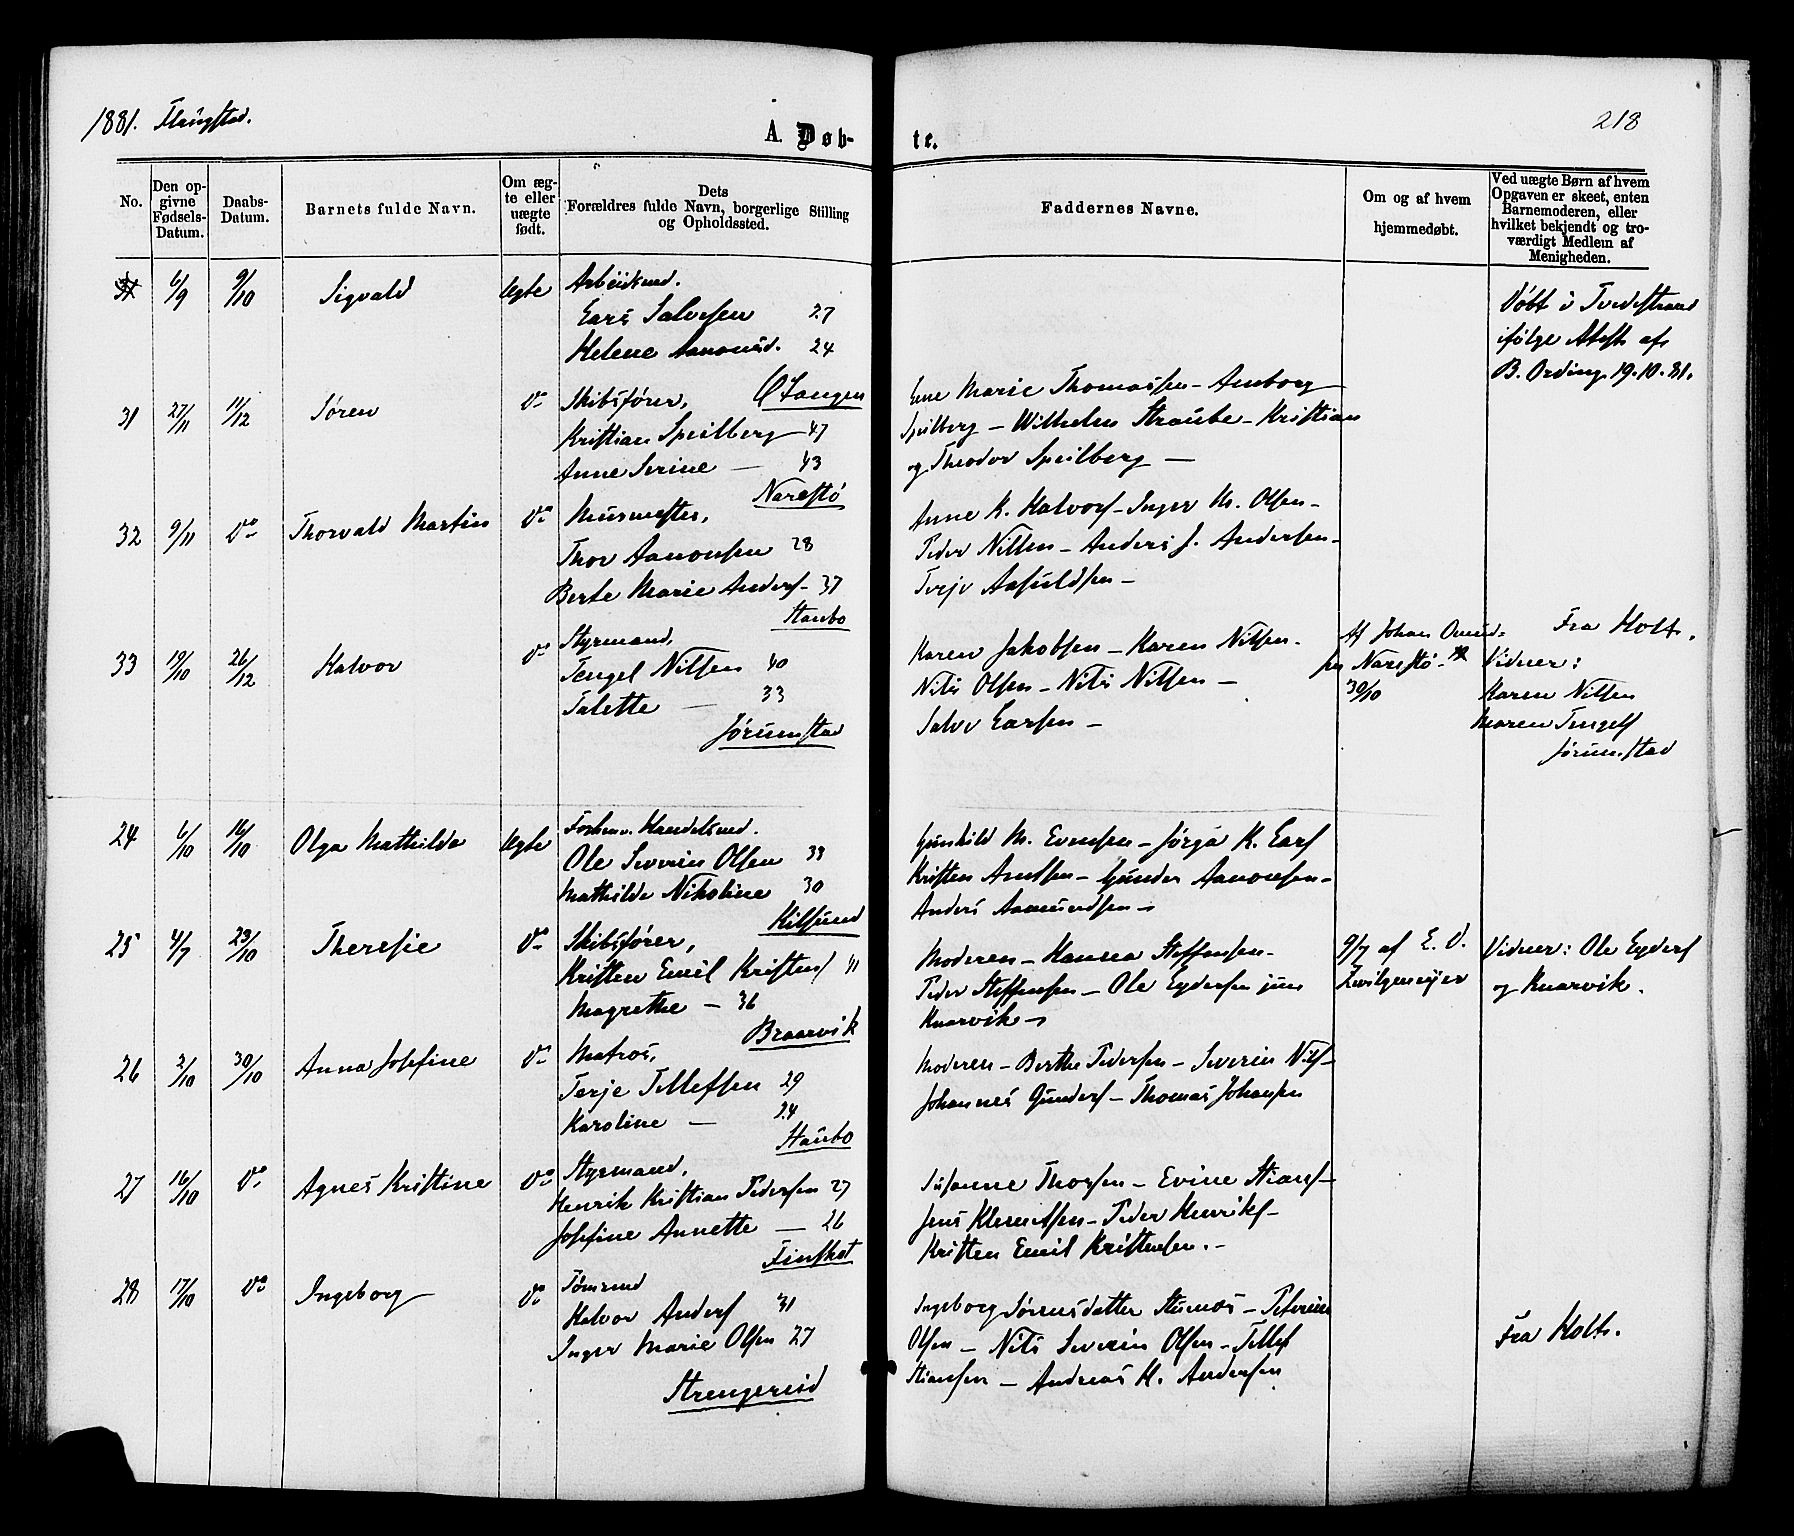 1881. Flangstad.
218
A. Døb-
te.
No.
Den op-
givne
Fødsels-
Datum.
Daabs-
Datum.
Barnets fulde Navn.
Om æg-
te eller
uægte
født.
Dets
Forældres fulde Navn, borgerlige Stilling
og Opholdssted.
Faddernes Navne.
Om og af hvem
hjemmedøbt.
Ved uægte Børn af hvem
Opgaven er skeet, enten
Barnemoderen, eller
hvilket bekjendt og tro-
værdigt Medlem af
Menigheden.
6/9 9/10 Sigvald Ægte Arbeidsmd.
Lars Salvesen 27
Helene Aanonsd. 24
Tangen
Døbt i Tvedestrand
ifølge Attest af
B. Ording 19.10.81.
31 27/11 11/12 Søren Do Skibsfører,
Kristian Speilberg 47
Anne Serine — 43
Narestø
Ene Marie Thomassen – Amborg
Speilberg – Wilhelm Straube – Kristian
og Theodor Speilberg —
32 9/11 Do Thorvald Martin Do Murmester,
Thor Aanonsen 28
Berte Marie Anders- 37
Staubo
Anne K. Halvors – Inger M. Olsen –
Peder Nilsen – Anders J. Andersen –
Terje Aasuldsen –
33 19/10 26/12 Halvor Do Styrmand,
Tengel Nilsen 40
Talette — 33
Jørumstad
Karen Jakobsen – Karen Nilsen –
Nils Olsen – Nils Nilsen –
Salve Larsen –
Af Johan Omund-
sen Narestø –
30/10
Fra Holt.
Vidner:
Karen Nilsen
Maren Tengels
Jørumstad
24 6/10 16/10 Olga Mathilde Ægte Forhenv. Handelsmd.
Ole Severin Olsen 33
Mathilde Nikoline 30
Kilsund
Gunhild M. Evensen – Jørga K. Lars
Kristen Arntsen – Gunder Aanonsen –
Anders Aamundsen –
25 4/7 23/10 Theresie Do Skibsfører,
Kristen Emil Kristens 41
Magrethe – 36
Braarvik
Moderen – Hansea Steffensen –
Peder Steffensen – Ole Eydersen jun
Knarvik –
9/7 af E. D.
Zwilgemeyer
Vidner: Ole Eyders
og Knarvik.
26 2/10 30/10 Anna Josefine Do Matros,
Terje Tellefsen 29
Karoline — 24
Staubo
Moderen – Berthe Pedersen – Severin Nils-
Johannes Gunders – Thomas Johansen
27 16/10 Do Agnes Kristine Do Styrmand,
Henrik Kristian Pedersen 27
Josefine Annette — 26
Finskot
Susanne Thorsen – Evine Stians-
Jens Klemetsen – Peder Henriks-
Kristen Emil Kristensen. –
28 17/10 Do Ingeborg Do Tømmrmd
Halvor Anders 31
Inger Marie Olsen 27
Strengereid
Ingeborg Sørensdatter – Peterine
Olsen – Nils Severin Olsen – Tellef
Stiansen – Andreas K. Andersen
Fra Holt.